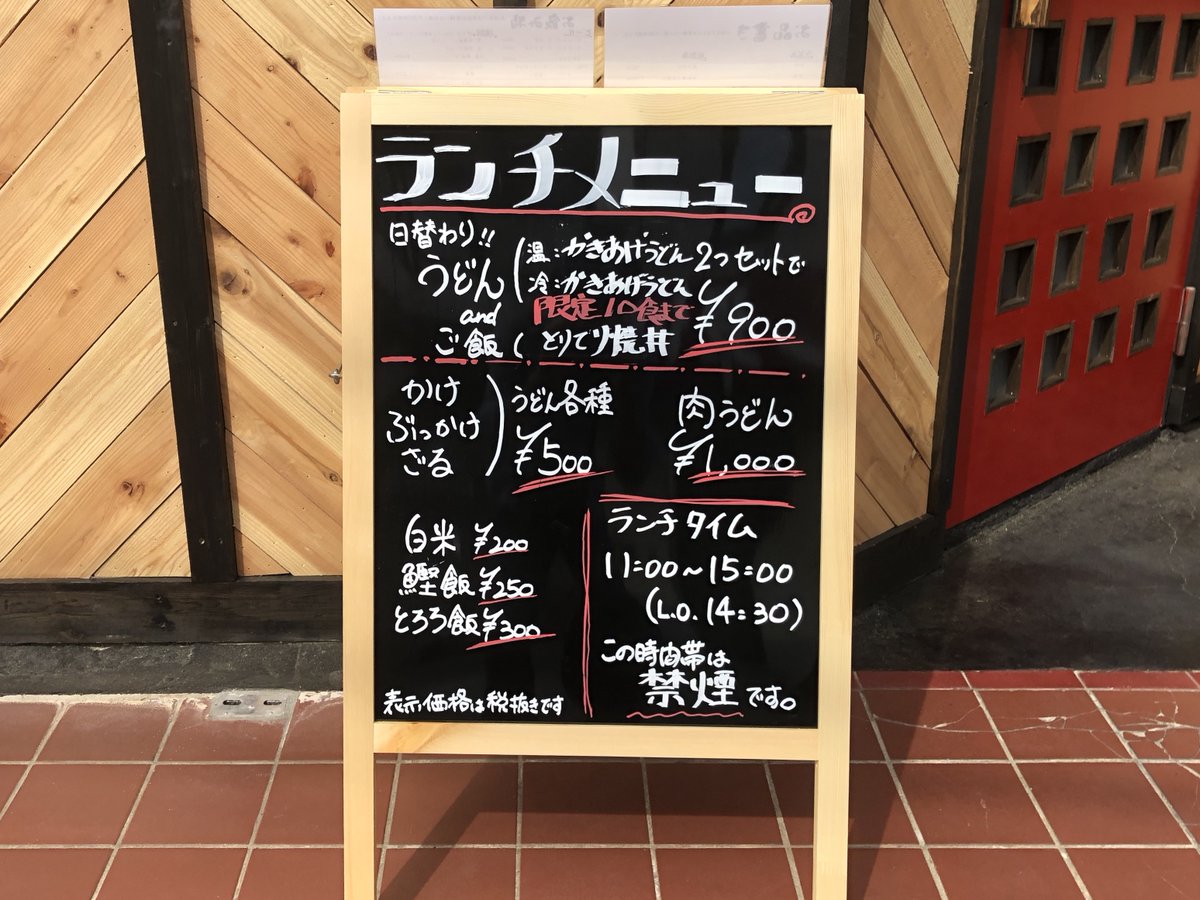 ランチメニュー
日替わり!!
うどん
and
ご飯
温:かきあげうどん
冷:かきあげうどん
限定10食まで
2つセットで
¥900
かけ
ぶっかけ
ざる
うどん各種
¥500
肉うどん
¥1,000
白米 ¥200
鰹飯 ¥250
とろろ飯 ¥300
表示価格は税抜きです
ランチタイム
11:00~15:00
(L.O. 14:30)
この時間帯は
禁煙です。